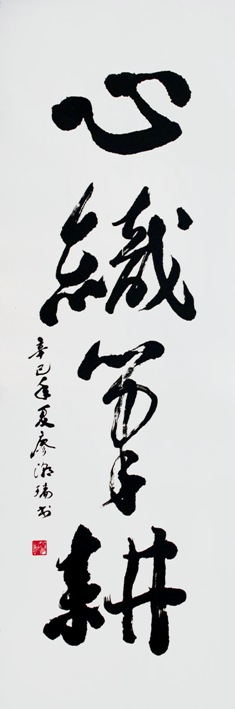 心織筆耕
辛巳年夏廖潞瑞书